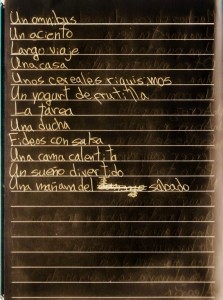 Un omnibus
Un aciento
Largo viaje
Una casa
Unos cereales riquisimos
Un yogurt de frutilla
La tarea
Una ducha
Fideos con salsa
Una cama calentita
Un sueño divertido
Una mañana del sábado